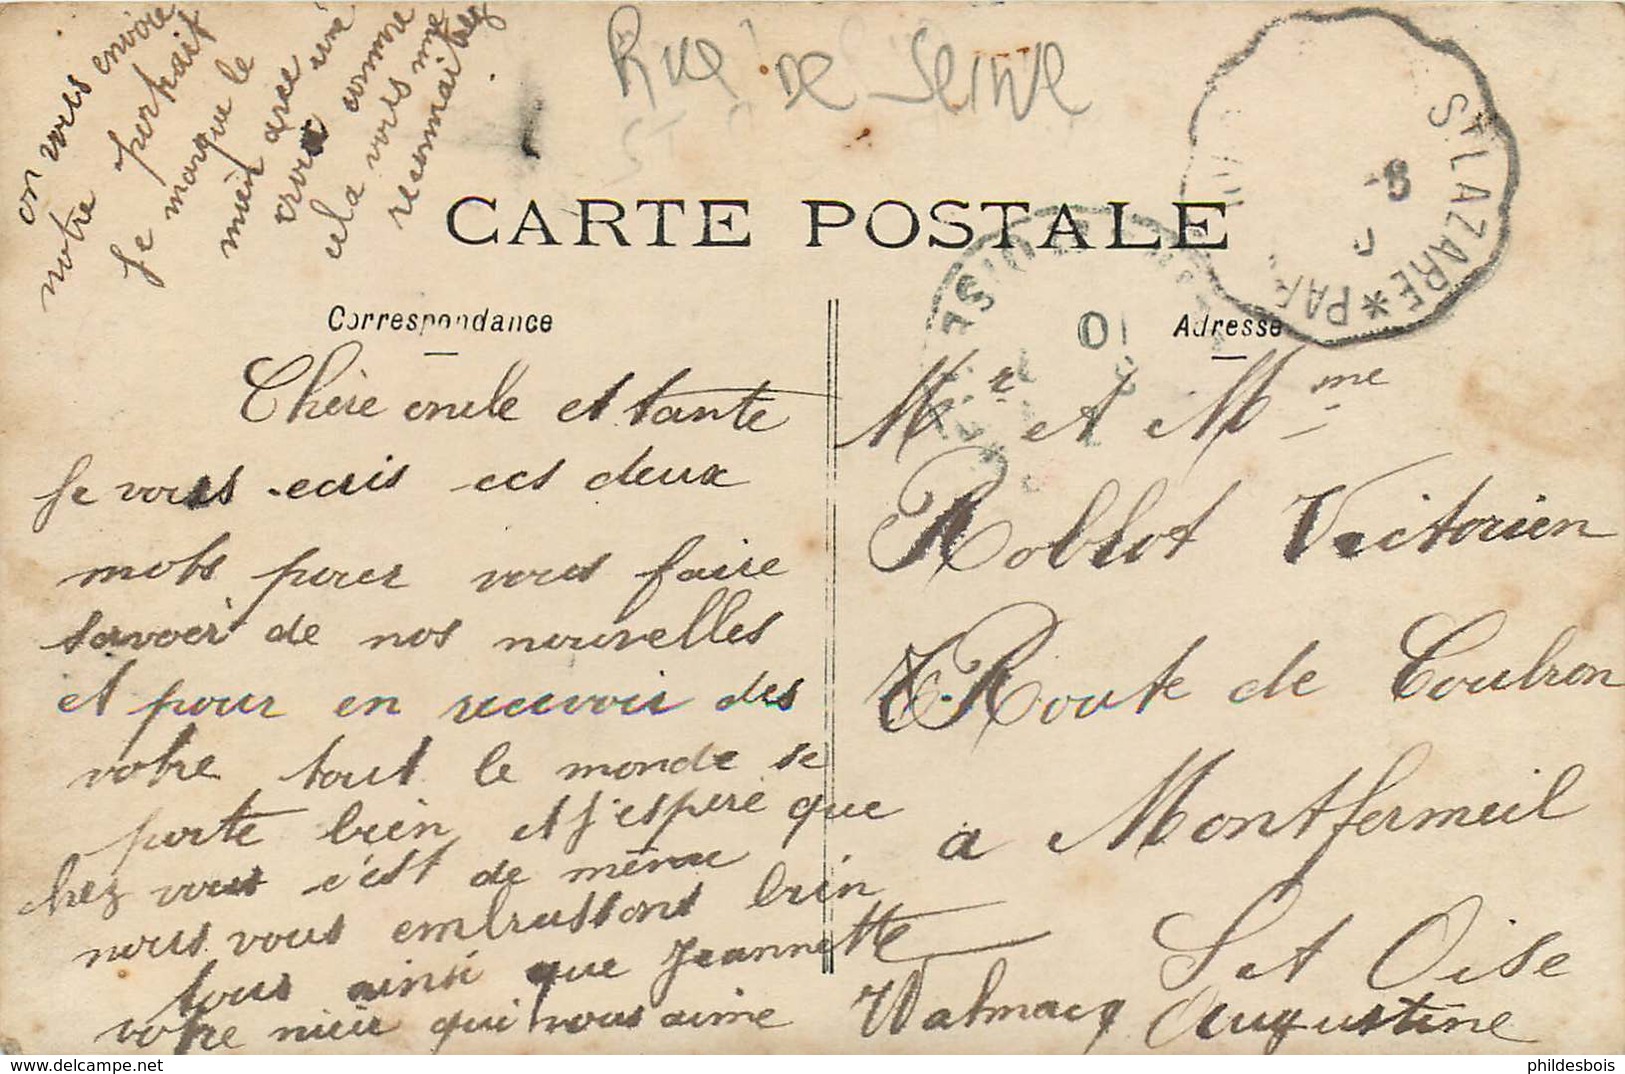 on vous envoie
notre portrait
Je marque le
mien avec une
croix comme
cela vous me
reconnaitrez
Rue de Seine
CARTE POSTALE
ST LAZARE * PAR
Correspondance
Adresse
10
Chère oncle et tante
Je vous ecris ces deux
mots pour vous faire
savoir de nos nouvelles
et pour en recevoir des
votre tout le monde se
porte bien et j'espere que
chez vous c'est de même
nous vous embrassons bien
tous ainsi que Jeannette
votre niece qui vous aime Walmacq Augustine
Mr et Mme
Roblot Victorien
Route de Coubron
a Montfermeil
S et Oise
phildesbois